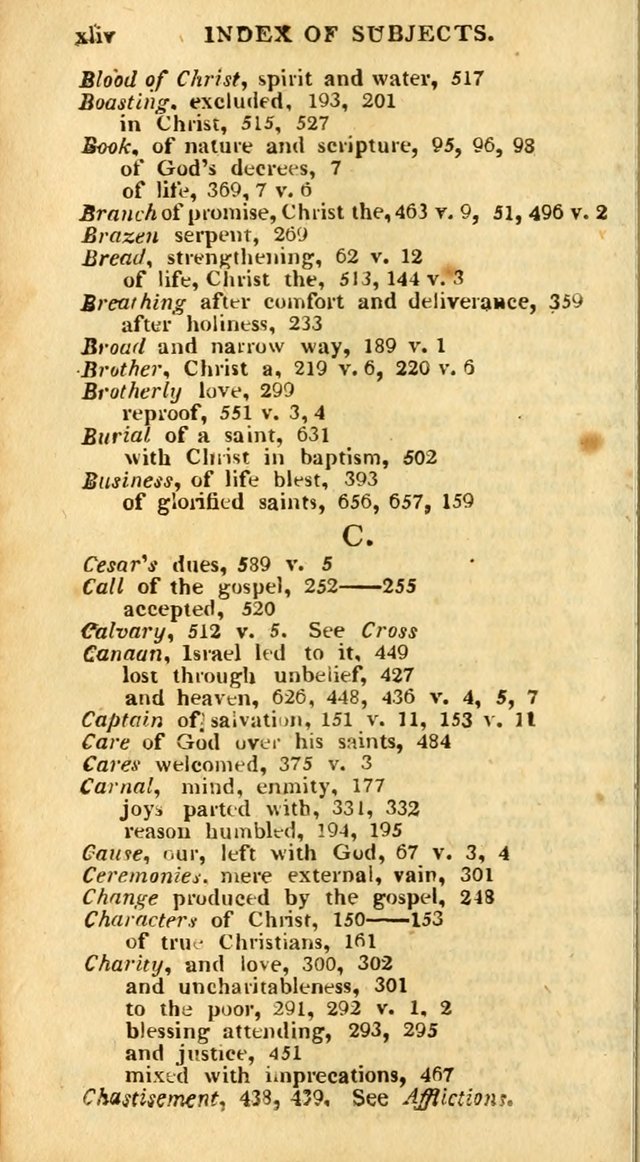 xliv INDEX OF SUBJECTS.
Blood of Christ, spirit and water, 517
Boasting, excluded, 193, 201
in Christ, 515, 527
Book, of nature and scripture, 95, 96, 98
of God's decrees, 7
of life, 369, 7 v. 6
Branch of promise, Christ the, 463 v. 9, 51, 496 v. 2
Brazen serpent, 269
Bread, strengthening, 62 v. 12
of life, Christ the, 513, 144 v. 3
Breathing after comfort and deliverance, 359
after holiness, 233
Broad and narrow way, 189 v. 1
Brother, Christ a, 219 v. 6, 220 v. 6
Brotherly love, 299
reproof, 551 v. 3, 4
Burial of a saint, 631
with Christ in baptism, 502
Business, of life blest, 393
of glorified saints, 656, 657, 159
C.
Cesar's dues, 589 v. 5
Call of the gospel, 252——255
accepted, 520
Calvary, 512 v. 5. See Cross
Canaan, Israel led to it, 449
lost through unbelief, 427
and heaven, 626, 448, 436 v. 4, 5, 7
Captain of salvation, 151 v. 11, 153 v. 11
Care of God over his saints, 484
Cares welcomed, 375 v. 3
Carnal, mind, enmity, 177
joys parted with, 331, 332
reason humbled, 194, 195
Cause, our, left with God, 67 v. 3, 4
Ceremonies. mere external, vain, 301
Change produced by the gospel, 248
Characters of Christ, 150——153
of true Christians, 161
Charity, and love, 300, 302
and uncharitableness, 301
to the poor, 291, 292 v. 1, 2
blessing attending, 293, 295
and justice, 451
mixed with imprecations, 467
Chastisement, 438, 439. See Afflictions.